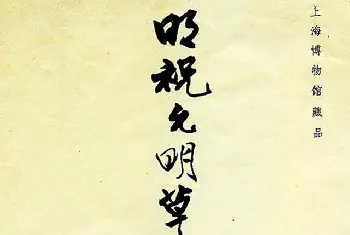 上海博物馆藏品
明祝允明草